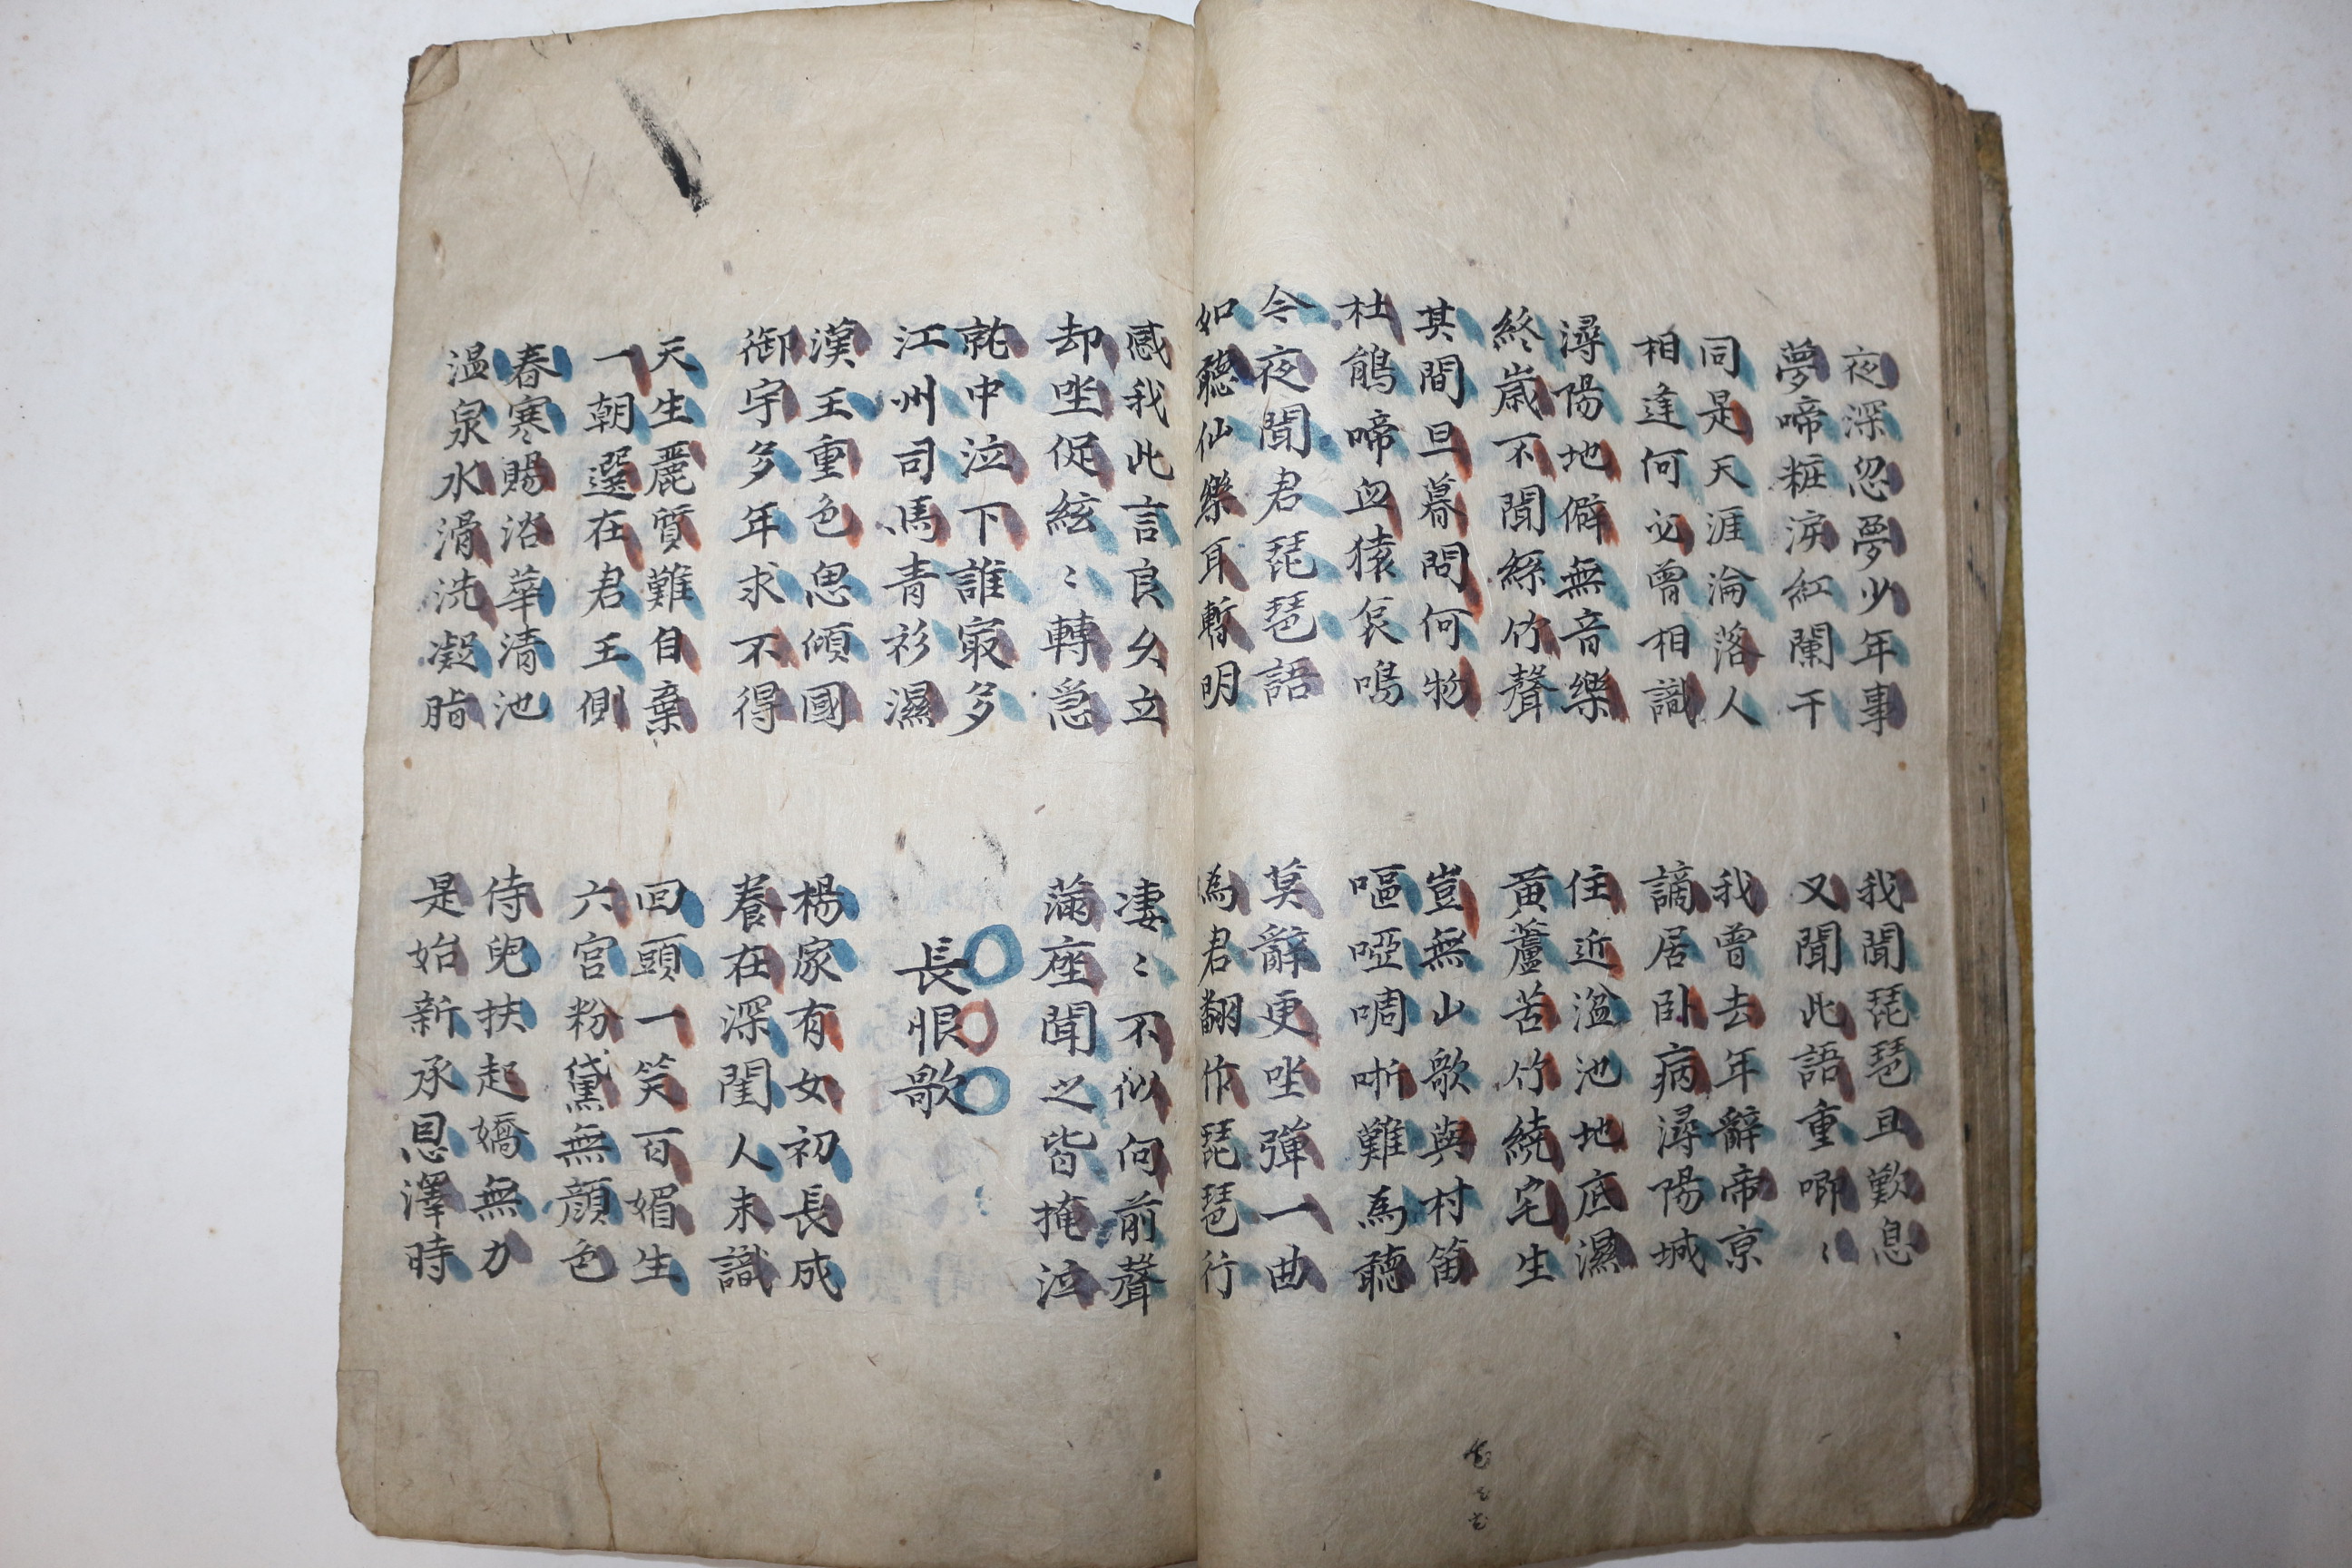 夜深忽夢少年事
夢啼粧淚紅闌干
我聞琵琶且歎息
又聞此語重唧〻
同是天涯淪落人
相逢何必曾相識
我曾去年辭帝京
謫居卧病潯陽城
潯陽地僻無音樂
終歲不聞絲竹聲
住近湓池地底濕
黃蘆苦竹繞宅生
其間旦暮問何物
杜鵑啼血猿哀鳴
豈無山歌與村笛
嘔啞啁哳難為聽
今夜聞君琵琶語
如聽仙樂耳暫明
莫辭更坐彈一曲
為君翻作琵琶行
感我此言良久立
却坐促絃〻轉急
凄〻不似向前聲
滿座聞之皆掩泣
就中泣下誰㝡多
江州司馬青衫濕
長恨歌
漢王重色思傾國
御宇多年求不得
楊家有女初長成
養在深閨人未識
天生麗質難自棄
一朝選在君王側
回頭一笑百媚生
六宮粉黛無顔色
春寒賜浴華清池
温泉水滑洗凝脂
侍兒扶起嬌無力
是始新承恩澤時